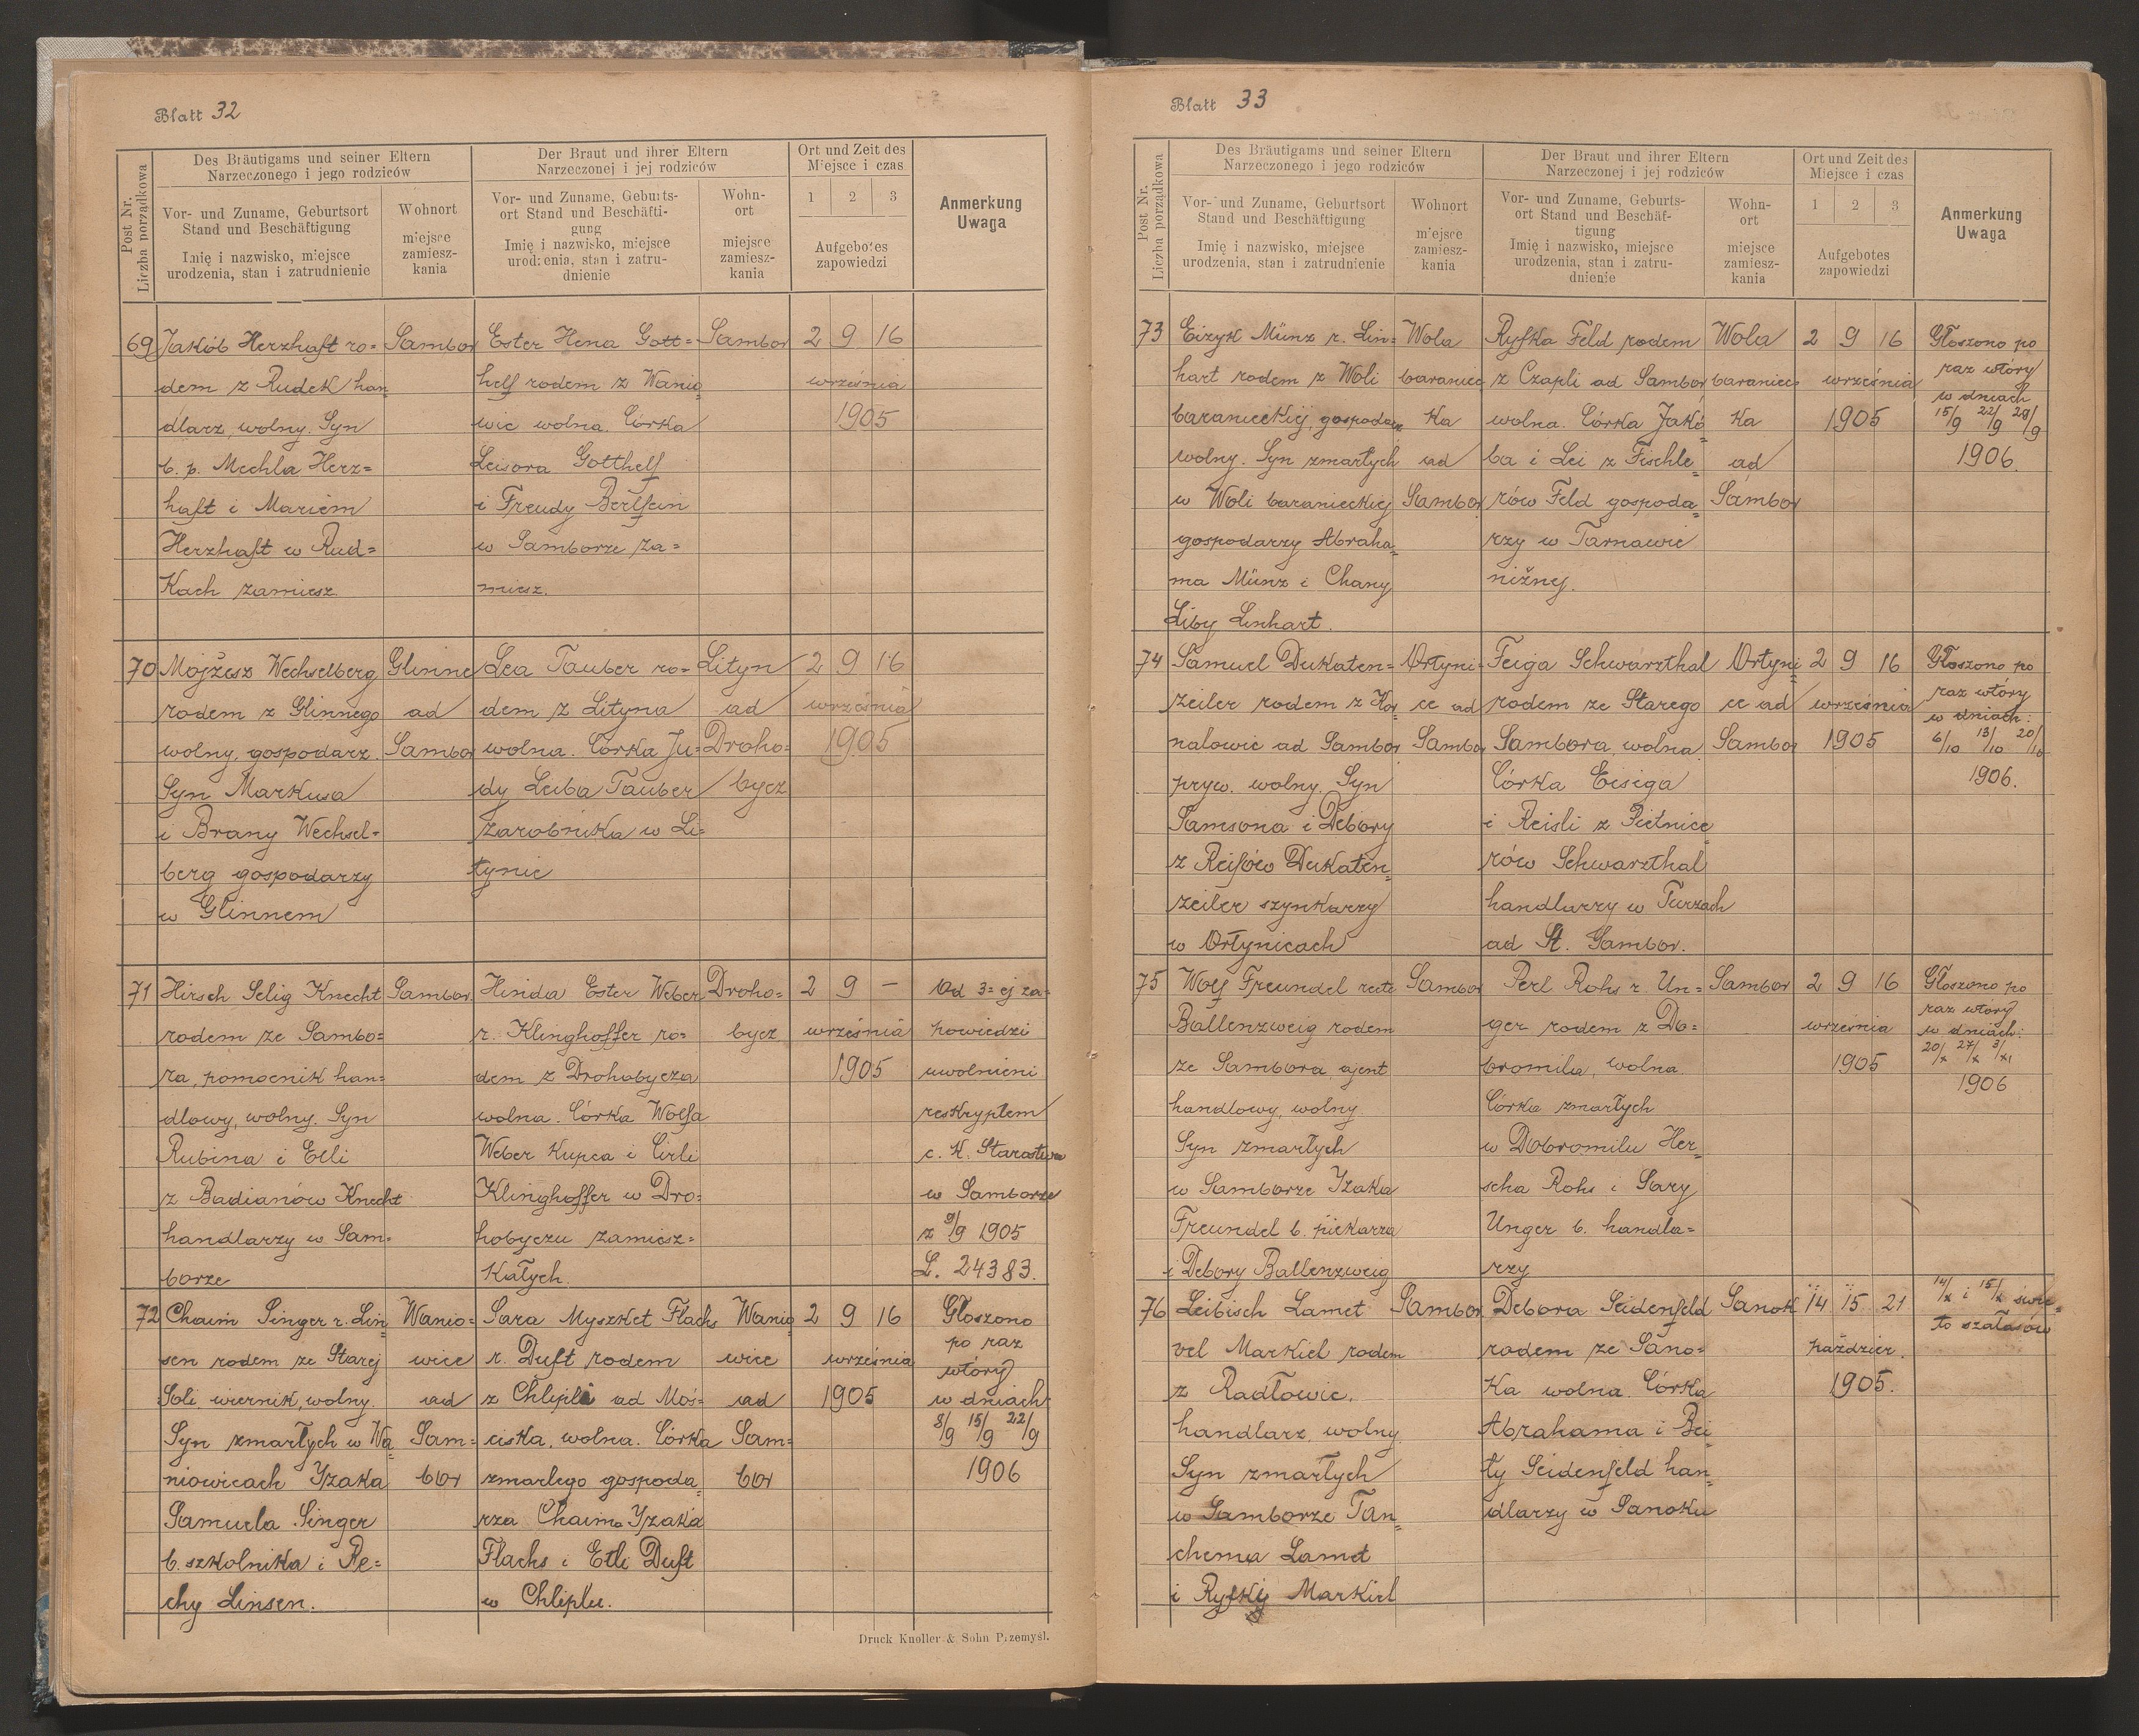 Blatt 32
Post Nr.
Liczba porządkowa
Des Bräutigams und seiner Eltern
Narzeczonego i jego rodziców
Vor- und Zuname, Geburtsort
Stand und Beschäftigung
Imię i nazwisko, miejsce
urodzenia, stan i zatrudnienie
Wohnort
miejsce
zamiesz-
kania
Der Braut und ihrer Eltern
Narzeczonej i jej rodziców
Vor- und Zuname, Geburts-
ort Stand und Beschäfti-
gung
Imię i nazwisko, miejsce
urodzenia, stan i zatru-
dnienie
Wohn-
ort
miejsce
zamiesz-
kania
Ort und Zeit des
Miejsce i czas
1 2 3
Aufgebotes
zapowiedzi
Anmerkung
Uwaga
69 Jakób Herzhaft ro=
dem z Rudek han
dlarz, wolny. Syn
b. p. Mechla Herz=
haft i Mariem
Herzhaft w Rud=
kach zamiesz
Sambor
Ester Hena Gott=
helf rodem z Wanio
wic wolna. Córka
Leisora Gotthelf
i Freudy Berlfein
w Samborze za=
miesz.
Sambor
2 9 16
września
1905
70 Mojżesz Wechselberg
rodem z Glinnego
wolny, gospodarz.
Syn Markusa
i Brany Wechsel-
berg gospodarzy
w Glinnem
Glinne
ad
Sambor
Lea Tauber ro=
dem z Lityna
wolna. Córka Ju=
dy Leiba Tauber
zarobnika w Li=
tynie
Lityn
ad
Droho=
bycz
2 9 16
września
1905
71 Hirsch Selig Knecht
rodem ze Sambo=
ra, pomocnik han=
dlowy, wolny. Syn
Rubina i Elli
z Badianów Knecht
handlarzy w Sam=
borze
Sambor
Hinda Ester Weber
r. Klinghoffer ro=
dem z Drohobycza
wolna. Córka Wolfa
Weber kupca i Cirli
Klinghoffer w Dro=
hobyczu zamiesz=
kałych.
Droho=
bycz
2 9 —
września
1905
Od 3=ej za=
powiedzi
uwolnieni
reskryptem
c. k. Starostwa
w Samborze
z 9/9 1905
L. 24383.
72 Chaim Singer r. Lin=
sen rodem ze Starej
Soli, wiernik, wolny.
Syn zmarłych w Wa
niowicach Yzaka
Samuela Singer
b. szkolnika i Re=
chy Linsen.
Wanio=
wice
ad
Sam=
bor
Sara Myszket Flachs
r. Duft rodem
z Chlipla ad Moś=
ciska, wolna. Córka
zmarłego gospoda=
rza Chaima Yzaka
Flachs i Etli Duft
w Chliplu.
Wanio
wice
ad
Sam=
bor
2 9 16
września
1905
Głoszono
po raz
wtóry
w dniach
8/9 15/9 22/9
1906
Druck Knoller & Sohn Przemyśl.
Blatt 33
Post Nr.
Liczba porządkowa
Des Bräutigams und seiner Eltern
Narzeczonego i jego rodziców
Vor- und Zuname, Geburtsort
Stand und Beschäftigung
Imię i nazwisko, miejsce
urodzenia, stan i zatrudnienie
Wohnort
miejsce
zamiesz-
kania
Der Braut und ihrer Eltern
Narzeczonej i jej rodziców
Vor- und Zuname, Geburts-
ort Stand und Beschäf-
tigung
Imię i nazwisko, miejsce
urodzenia, stan i zatru-
dnienie
Wohn-
ort
miejsce
zamiesz-
kania
Ort und Zeit des
Miejsce i czas
1 2 3
Aufgebotes
zapowiedzi
Anmerkung
Uwaga
73 Eizyk Münz r. Lin=
hart rodem z Woli
baranieckiej, gospodarz
wolny. Syn zmarłych
w Woli baranieckiej
gospodarzy Abraha=
ma Münz i Chany
Liby Linhart.
Wola
baraniec
ka
ad
Sambor
Ryfka Feld rodem
z Czapli ad Sambor
wolna. Córka Jakó=
ba i Lei z Fischle=
rów Feld gospoda=
rzy w Tarnawie
niżnej.
Wola
baraniec
ka
ad
Sambor
2 9 16
września
1905
Głoszono po
raz wtóry
w dniach
15/9 22/9 29/9
1906.
74 Samuel Dukaten=
zeiler rodem z Kor
nalowic ad Sambor
pryw. wolny. Syn
Samsona i Debory
z Reifów Dukaten=
zeiler szynkarzy
w Ortynicach
Ortyni=
ce ad
Sambor
Feiga Schwarzthal
rodem ze Starego
Sambora, wolna
Córka Eisiga
i Reisli z Pietnice
rów Schwarzthal
handlarzy w Turzach
ad St. Sambor.
Ortyni=
ce ad
Sambor
2 9 16
września
1905
Głoszono po
raz wtóry
w dniach:
6/10 13/10 20/10
1906.
75 Wolf Freundel recte
Ballenzweig rodem
ze Sambora, ajent
handlowy, wolny
Syn zmarłych
w Samborze Yzaka
Freundel b. piekarza
i Debory Ballenzweig
Sambor
Perl Rohs r. Un=
ger rodem z Do=
bromila, wolna.
Córka zmarłych
w Dobromilu Her=
scha Rohs i Sary
Unger b. handla=
rzy
Sambor
2 9 16
września
1905
Głoszono po
raz wtóry
w dniach:
20/X 27/X 3/XI
1906
76 Leibisch Lamet
vel Markiel rodem
z Radłowic.
handlarz, wolny
Syn zmarłych
w Samborze Tan=
chema Lamet
i Ryfki Markiel
Sambor
Debora Seidenfeld
rodem ze Sano=
ka wolna. Córka
Abrahama i Bei=
ły Seidenfeld han=
dlarzy w Sanoku
Sanok
14 15 21
paździer.
1905.
14/X i 15/X świę=
to szałasów